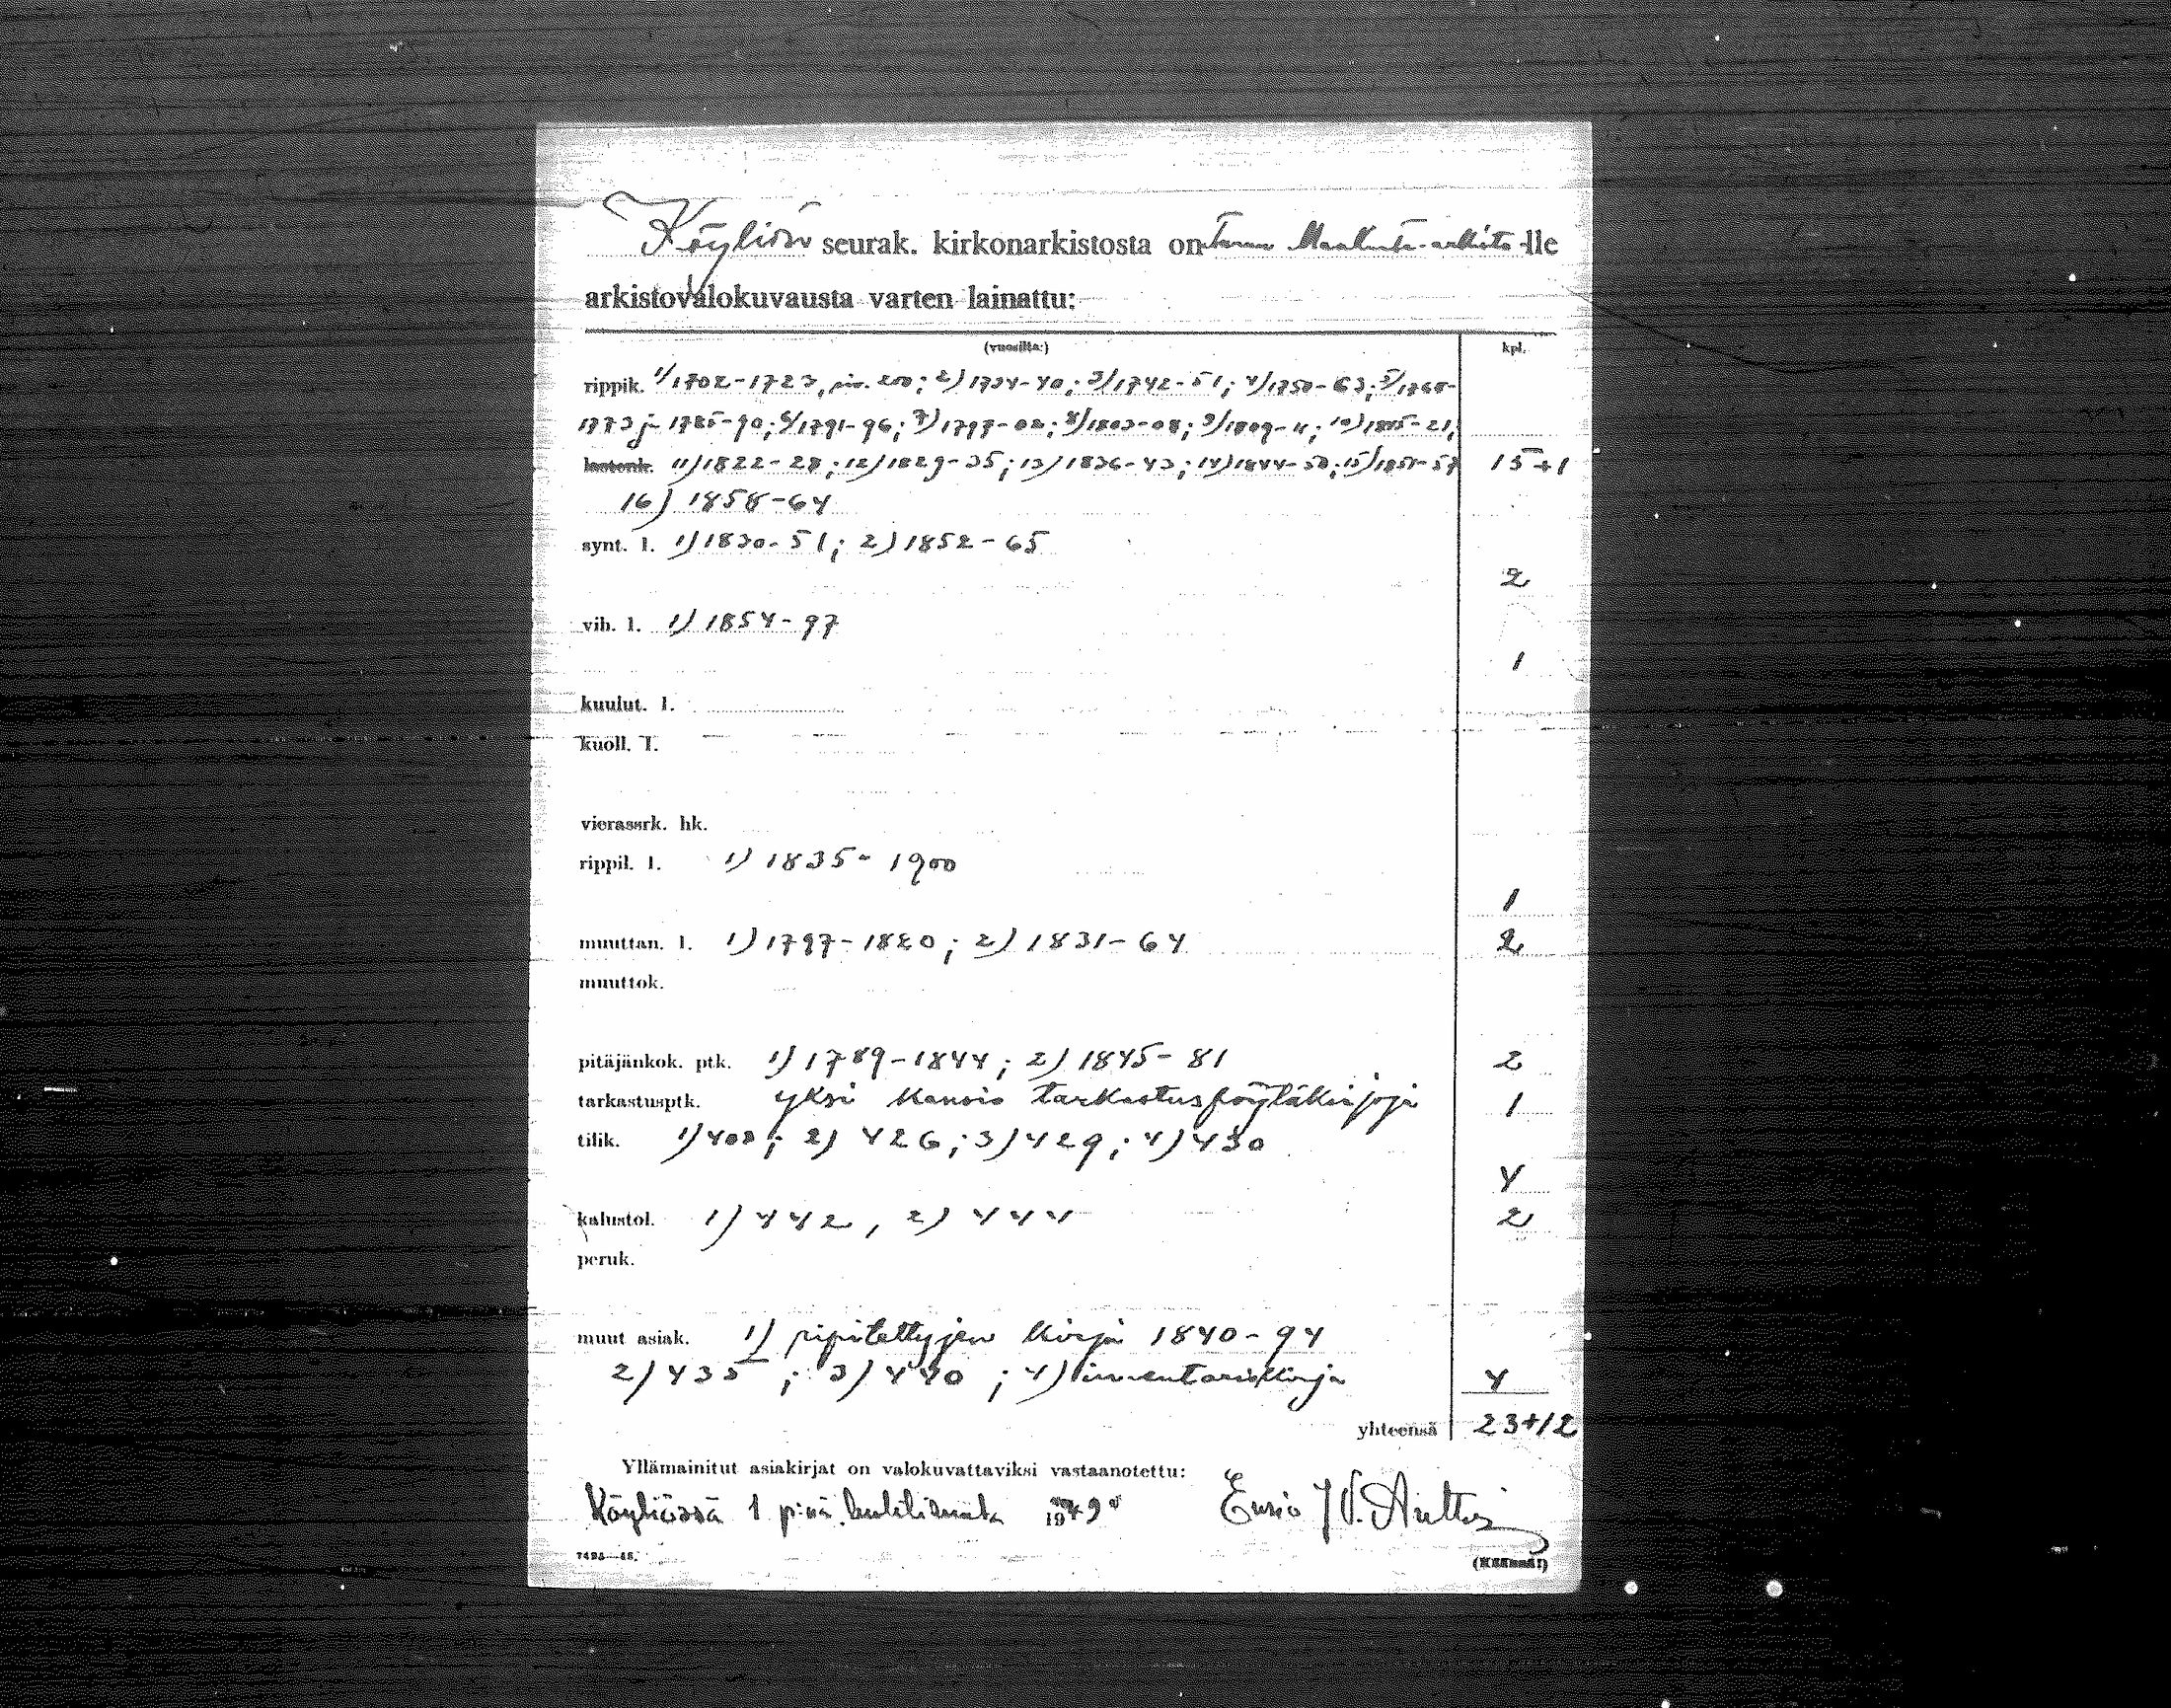 Köyliön seurak. kirkonarkistosta on Turun Maakunta-arkisto-lle
arkistovalokuvausta varten lainattu:
(vuosilta:) kpl.
rippik. 1/1702-1723, siv. 200; 2) 1734-40; 3/1742-51; 4/1750-63; 5/1765-
1773 ja 1785-90; 6/1791-96; 7) 1797-02; 8/1803-08; 9/1809-11; 10) 1815-21;
lastenk. 11) 1822-28; 12) 1829-35; 13) 1836-43; 14) 1844-50; 15) 1851-57 15+1
16) 1858-64
synt. l. 1) 1830-51; 2) 1852-65
2
vih. l. 1) 1854-97
1
kuulut. l.
kuoll. l.
vierassrk. hk.
rippil. l. 1) 1835-1900
1
muuttan. l. 1) 1797-1820; 2) 1831-64 2
muuttok.
pitäjänkok. ptk. 1) 1789-1844; 2) 1845-81 2
tarkastusptk. yksi kansio tarkastuspöytäkirjoja 1
tilik. 1) 402; 2) 426; 3) 429; 4) 430
4
kalustol. 1) 442, 2) 444 2
peruk.
muut asiak. 1) ripitettyjen kirja 1840-94
2) 435; 3) 440; 4) inventariokirja 4
yhteensä 23+12
Yllämainitut asiakirjat on valokuvattaviksi vastaanotettu:
Köyliössä 1 p:nä huhtikuuta 1949 Ensio J V. Anttos
7494—48. (Käännä!)